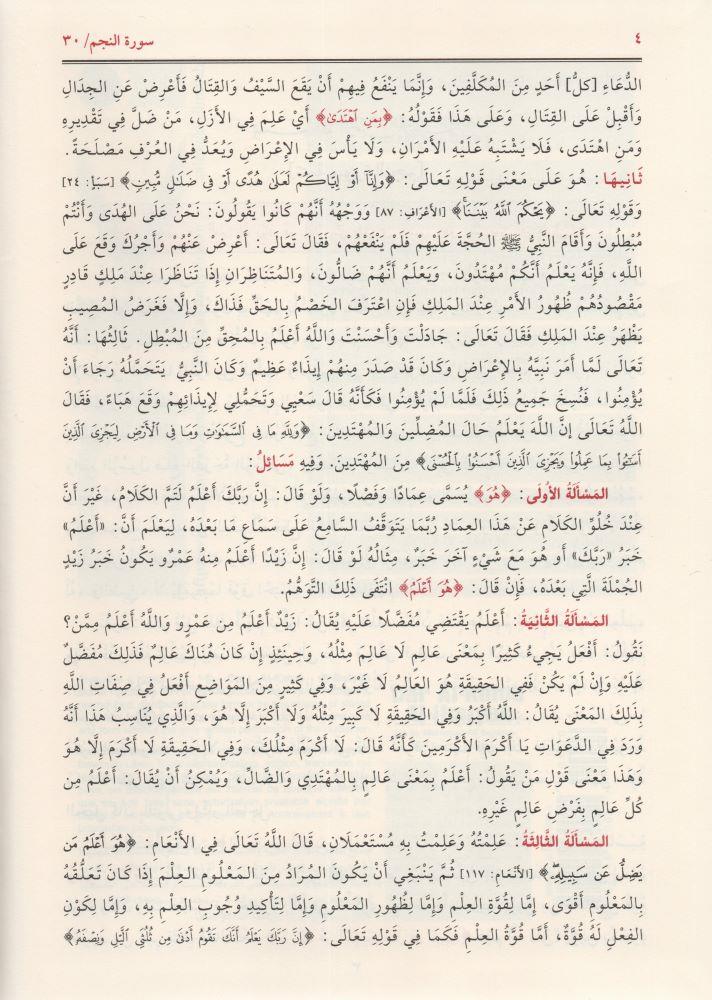 ٤ سورة النجم/ ٣٠
الدُّعَاءِ [كلُّ] أَحَدٍ مِنَ المُكَلَّفِينَ، وَإِنَّمَا يَنْفَعُ فِيهِمْ أَنْ يَقَعَ السَّيْفُ وَالقِتَالُ فَأَعْرِضْ عَنِ الجِدَالِ
وَأَقْبِلْ عَلَى القِتَالِ، وَعَلَى هَذَا فَقَوْلُهُ: ﴿بِمَنِ اهْتَدَىٰ﴾ أَيْ عَلِمَ فِي الأَزَلِ، مَنْ ضَلَّ فِي تَقْدِيرِهِ
وَمَنِ اهْتَدَى، فَلَا يَشْتَبِهُ عَلَيْهِ الأَمْرَانِ، وَلَا يَأْسَ فِي الإِعْرَاضِ وَيُعَدُّ فِي العُرْفِ مَصْلَحَةً.
ثَانِيهَا: هُوَ عَلَى مَعْنَى قَوْلِهِ تَعَالَى: ﴿وَإِنَّا أَوْ إِيَّاكُمْ لَعَلَىٰ هُدًى أَوْ فِى ضَلَٰلٍ مُّبِينٍ﴾ [سَبَإ: ٢٤]
وَقَوْلِهِ تَعَالَى: ﴿يَحْكُمَ اللَّهُ بَيْنَنَا﴾ [الأَعْرَافِ: ٨٧] وَوَجْهُهُ أَنَّهُمْ كَانُوا يَقُولُونَ: نَحْنُ عَلَى الهُدَى وَأَنْتُمْ
مُبْطِلُونَ وَأَقَامَ النَّبِيُّ ﷺ الحُجَّةَ عَلَيْهِمْ فَلَمْ يَنْفَعْهُمْ، فَقَالَ تَعَالَى: أَعْرِضْ عَنْهُمْ وَأَجْرُكَ وَقَعَ عَلَى
اللَّهِ، فَإِنَّهُ يَعْلَمُ أَنَّكُمْ مُهْتَدُونَ، وَيَعْلَمُ أَنَّهُمْ ضَالُّونَ، وَالمُتَنَاظِرَانِ إِذَا تَنَاظَرَا عِنْدَ مَلِكٍ قَادِرٍ
مَقْصُودُهُمْ ظُهُورُ الأَمْرِ عِنْدَ المَلِكِ فَإِنِ اعْتَرَفَ الخَصْمُ بِالحَقِّ فَذَاكَ، وَإِلَّا فَغَرَضُ المُصِيبِ
يَظْهَرُ عِنْدَ المَلِكِ فَقَالَ تَعَالَى: جَادَلْتَ وَأَحْسَنْتَ وَاللَّهُ أَعْلَمُ بِالمُحِقِّ مِنَ المُبْطِلِ. ثَالِثُهَا: أَنَّهُ
تَعَالَى لَمَّا أَمَرَ نَبِيَّهُ بِالإِعْرَاضِ وَكَانَ قَدْ صَدَرَ مِنْهُمْ إِيذَاءٌ عَظِيمٌ وَكَانَ النَّبِيُّ يَتَحَمَّلُهُ رَجَاءَ أَنْ
يُؤْمِنُوا، فَنُسِخَ جَمِيعُ ذَلِكَ فَلَمَّا لَمْ يُؤْمِنُوا فَكَأَنَّهُ قَالَ سَعْيِي وَتَحَمُّلِي لِإِيذَائِهِمْ وَقَعَ هَبَاءً، فَقَالَ
اللَّهُ تَعَالَى إِنَّ اللَّهَ يَعْلَمُ حَالَ المُضِلِّينَ وَالمُهْتَدِينَ: ﴿وَلِلَّهِ مَا فِى السَّمَٰوَٰتِ وَمَا فِى الْأَرْضِ لِيَجْزِىَ الَّذِينَ
أَسَٰٓـُٔوا۟ بِمَا عَمِلُوا۟ وَيَجْزِىَ الَّذِينَ أَحْسَنُوا۟ بِالْحُسْنَى﴾ مِنَ المُهْتَدِينَ. وَفِيهِ مَسَائِلُ:
المَسْأَلَةُ الأُولَى: ﴿هُوَ﴾ يُسَمَّى عِمَادًا وَفَصْلًا، وَلَوْ قَالَ: إِنَّ رَبَّكَ أَعْلَمُ لَتَمَّ الكَلَامُ، غَيْرَ أَنَّ
عِنْدَ خُلُوِّ الكَلَامِ عَنْ هَذَا العِمَادِ رُبَّمَا يَتَوَقَّفُ السَّامِعُ عَلَى سَمَاعِ مَا بَعْدَهُ، لِيَعْلَمَ أَنَّ: «أَعْلَمُ»
خَبَرُ «رَبَّكَ» أَو هُوَ مَعَ شَيْءٍ آخَرَ خَبَرٌ، مِثَالُهُ لَوْ قَالَ: إِنَّ زَيْدًا أَعْلَمُ مِنهُ عَمْرٌو يَكُونُ خَبَرُ زَيْدٍ
الجُمْلَةَ الَّتِي بَعْدَهُ، فَإِنْ قَالَ: ﴿هُوَ أَعْلَمُ﴾ انْتَفَى ذَلِكَ التَّوَهُّمُ.
المَسْأَلَةُ الثَّانِيَةُ: أَعْلَمُ يَقْتَضِي مُفَضَّلًا عَلَيْهِ يُقَالُ: زَيْدٌ أَعْلَمُ مِن عَمْرٍو وَاللَّهُ أَعْلَمُ مِمَّنْ؟
نَقُولُ: أَفْعَلُ يَجِيءُ كَثِيرًا بِمَعْنَى عَالِمٍ لَا عَالِمَ مِثْلُهُ، وَحِينَئِذٍ إِنْ كَانَ هُنَاكَ عَالِمٌ فَذَلِكَ مُفَضَّلٌ
عَلَيْهِ وَإِنْ لَمْ يَكُنْ فَفِي الحَقِيقَةِ هُوَ العَالِمُ لَا غَيْرَ، وَفِي كَثِيرٍ مِنَ المَوَاضِعِ أَفْعَلُ فِي صِفَاتِ اللَّهِ
بِذَلِكَ المَعْنَى يُقَالُ: اللَّهُ أَكْبَرُ وَفِي الحَقِيقَةِ لَا كَبِيرَ مِثْلُهُ وَلَا أَكْبَرَ إِلَّا هُوَ، وَالَّذِي يُنَاسِبُ هَذَا أَنَّهُ
وَرَدَ فِي الدَّعَوَاتِ يَا أَكْرَمَ الأَكْرَمِينَ كَأَنَّهُ قَالَ: لَا أَكْرَمَ مِثْلُكَ، وَفِي الحَقِيقَةِ لَا أَكْرَمَ إِلَّا هُوَ
وَهَذَا مَعْنَى قَوْلِ مَنْ يَقُولُ: أَعْلَمُ بِمَعْنَى عَالِمٍ بِالمُهْتَدِي وَالضَّالِّ، وَيُمْكِنُ أَنْ يُقَالَ: أَعْلَمُ مِن
كُلِّ عَالِمٍ بِفَرْضِ عَالِمٍ غَيْرِهِ.
المَسْأَلَةُ الثَّالِثَةُ: عَلِمْتُهُ وَعَلِمْتُ بِهِ مُسْتَعْمَلَانِ، قَالَ اللَّهُ تَعَالَى فِي الأَنْعَامِ: ﴿هُوَ أَعْلَمُ مَن
يَضِلُّ عَن سَبِيلِهِ﴾ [الأَنْعَامِ: ١١٧] ثُمَّ يَنْبَغِي أَنْ يَكُونَ المُرَادُ مِنَ المَعْلُومِ العِلْمَ إِذَا كَانَ تَعَلُّقُهُ
بِالمَعْلُومِ أَقْوَى، إِمَّا لِقُوَّةِ العِلْمِ وَإِمَّا لِظُهُورِ المَعْلُومِ وَإِمَّا لِتَأْكِيدِ وُجُوبِ العِلْمِ بِهِ، وَإِمَّا لِكَوْنِ
الفِعْلِ لَهُ قُوَّةٌ، أَمَّا قُوَّةُ العِلْمِ فَكَمَا فِي قَوْلِهِ تَعَالَى: ﴿إِنَّ رَبَّكَ يَعْلَمُ أَنَّكَ تَقُومُ أَدْنَىٰ مِن ثُلُثَىِ الَّيْلِ وَنِصْفَهُ﴾